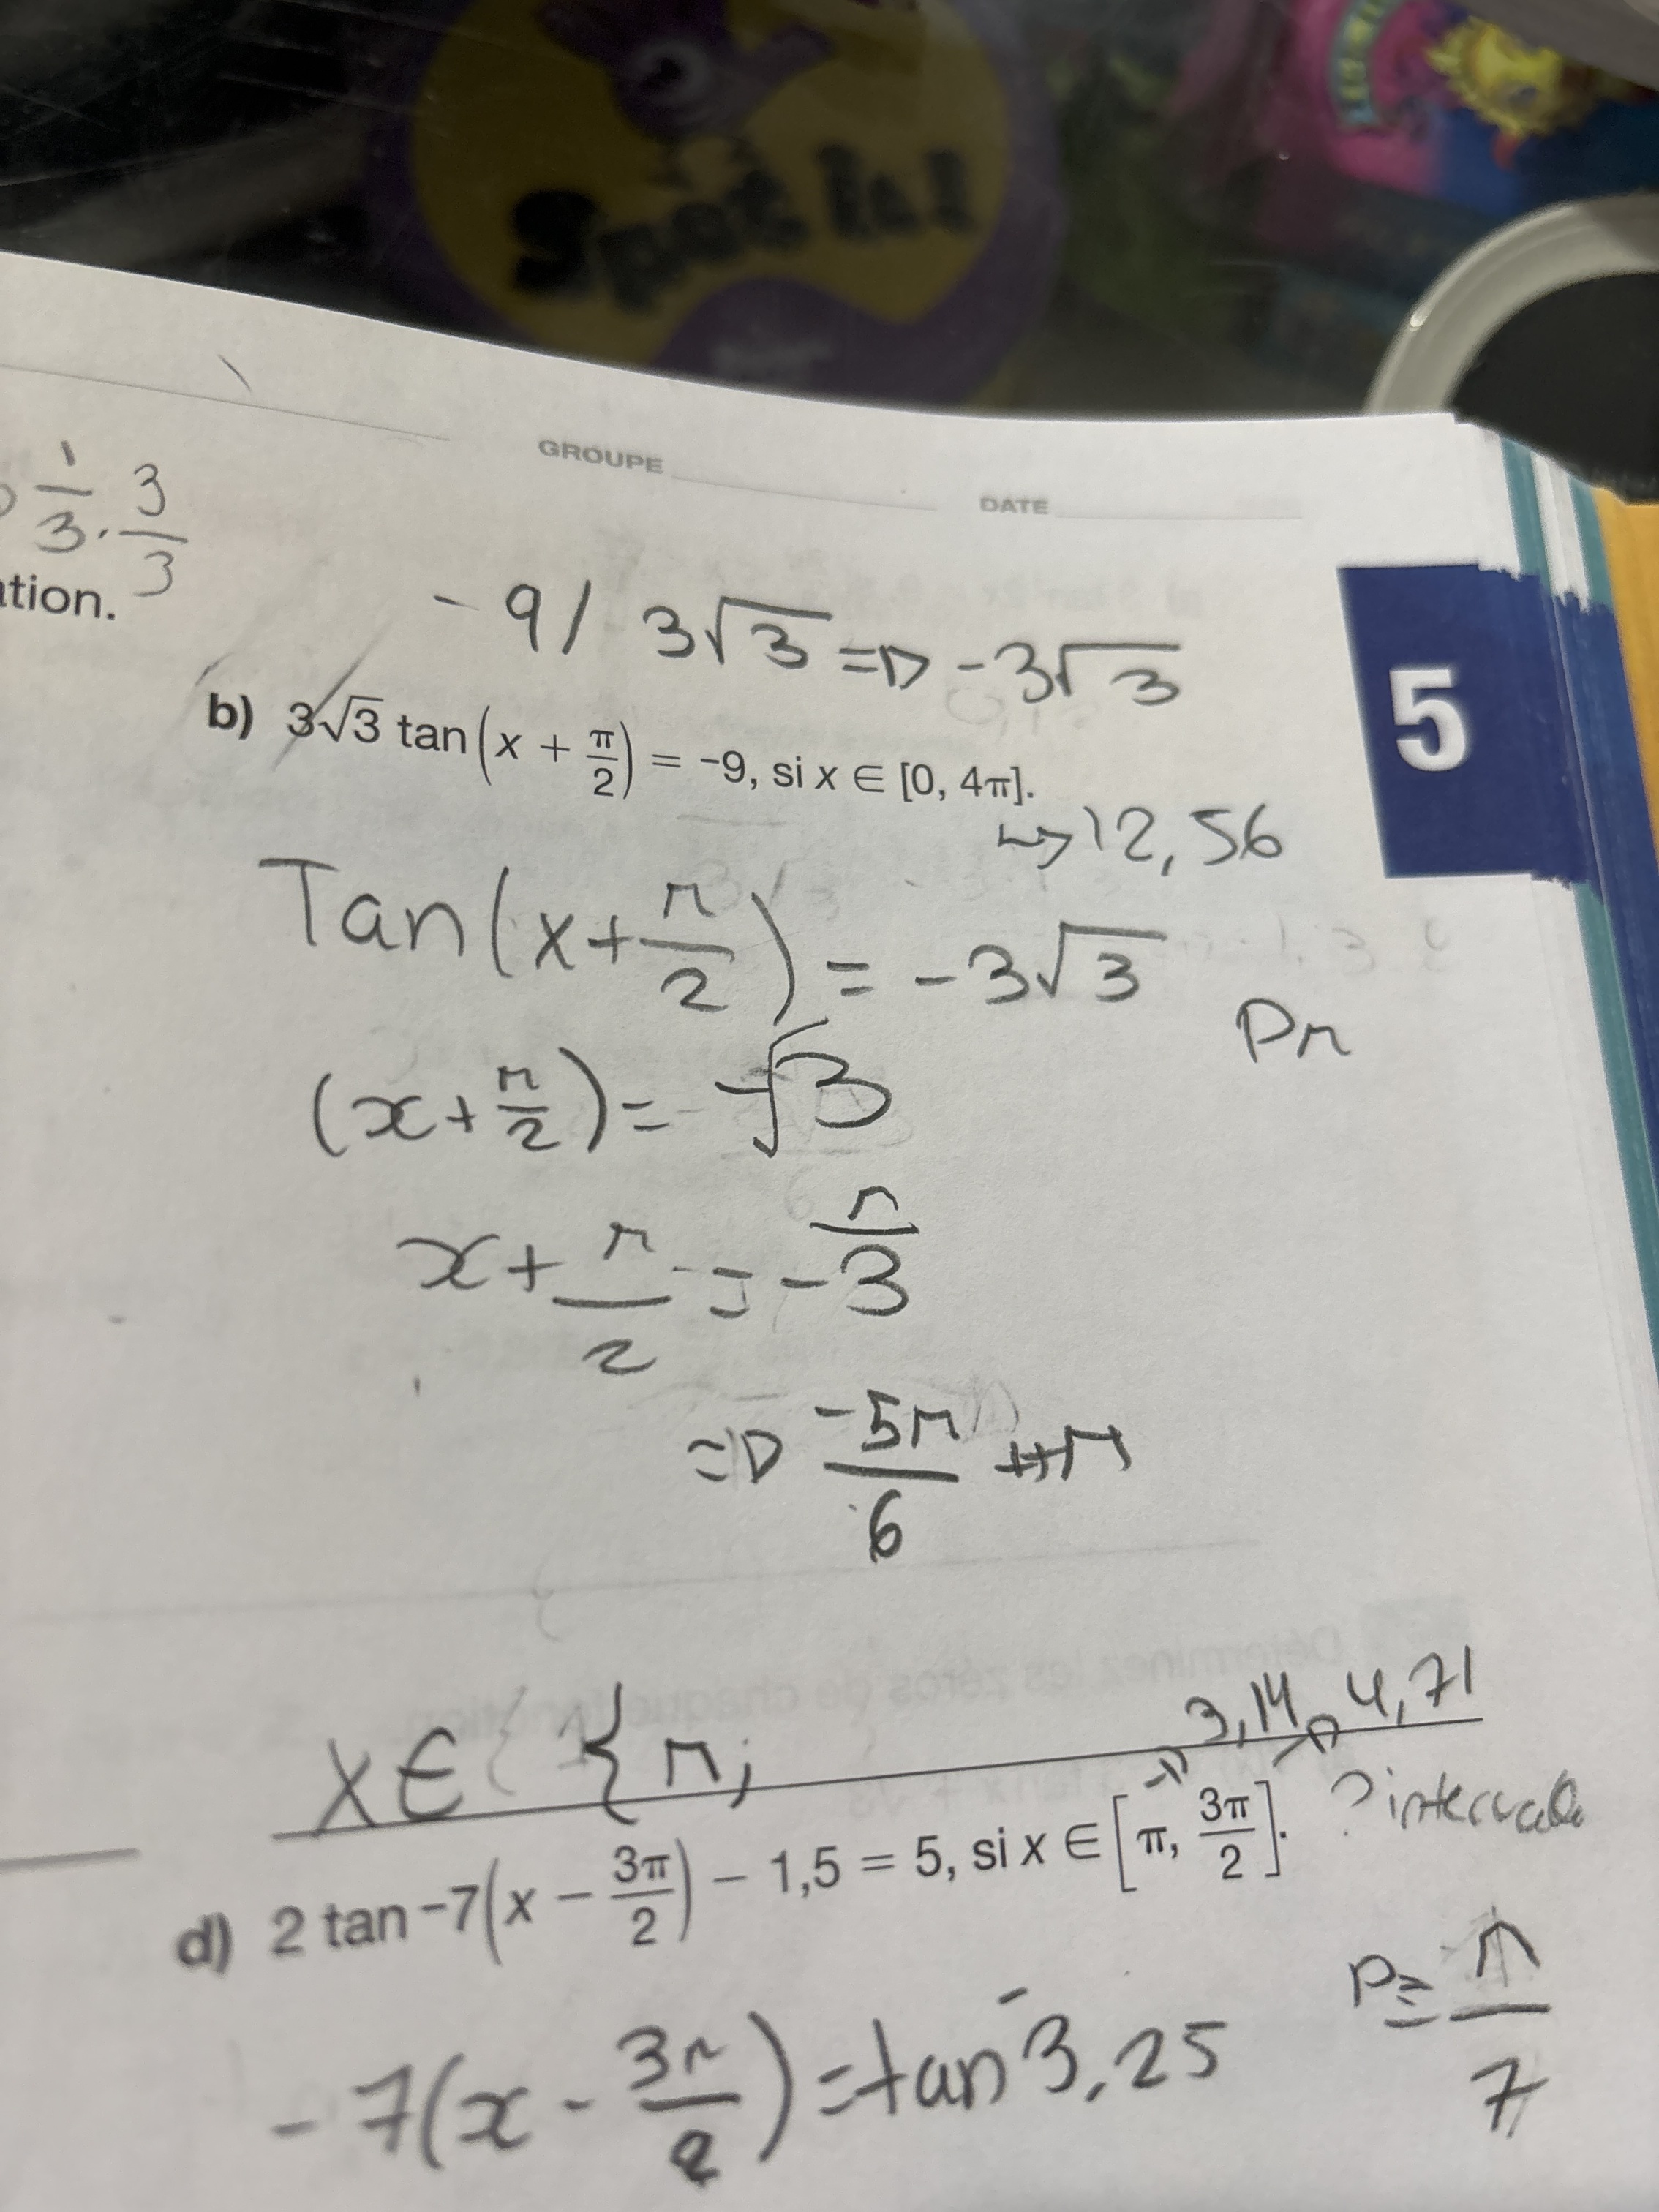 Spot it!
GROUPE
DATE
1/3 · 3/3
tion.
-9 / 3√3 => -3√3
b) 3√3 tan(x + π/2) = -9, si x ∈ [0, 4π].
↳ 12,56
5
Tan(x + π/2) = -3√3
Pπ
(x + π/2) = -√3
x + π/2 = -π/3
=> -5π/6 + π
3,14 4,71
x ∈ { π;
d) 2 tan -7(x - 3π/2) - 1,5 = 5, si x ∈ [π, 3π/2].
? intervalle
P = π/7
-7(x - 3π/2) = tan⁻ 3,25